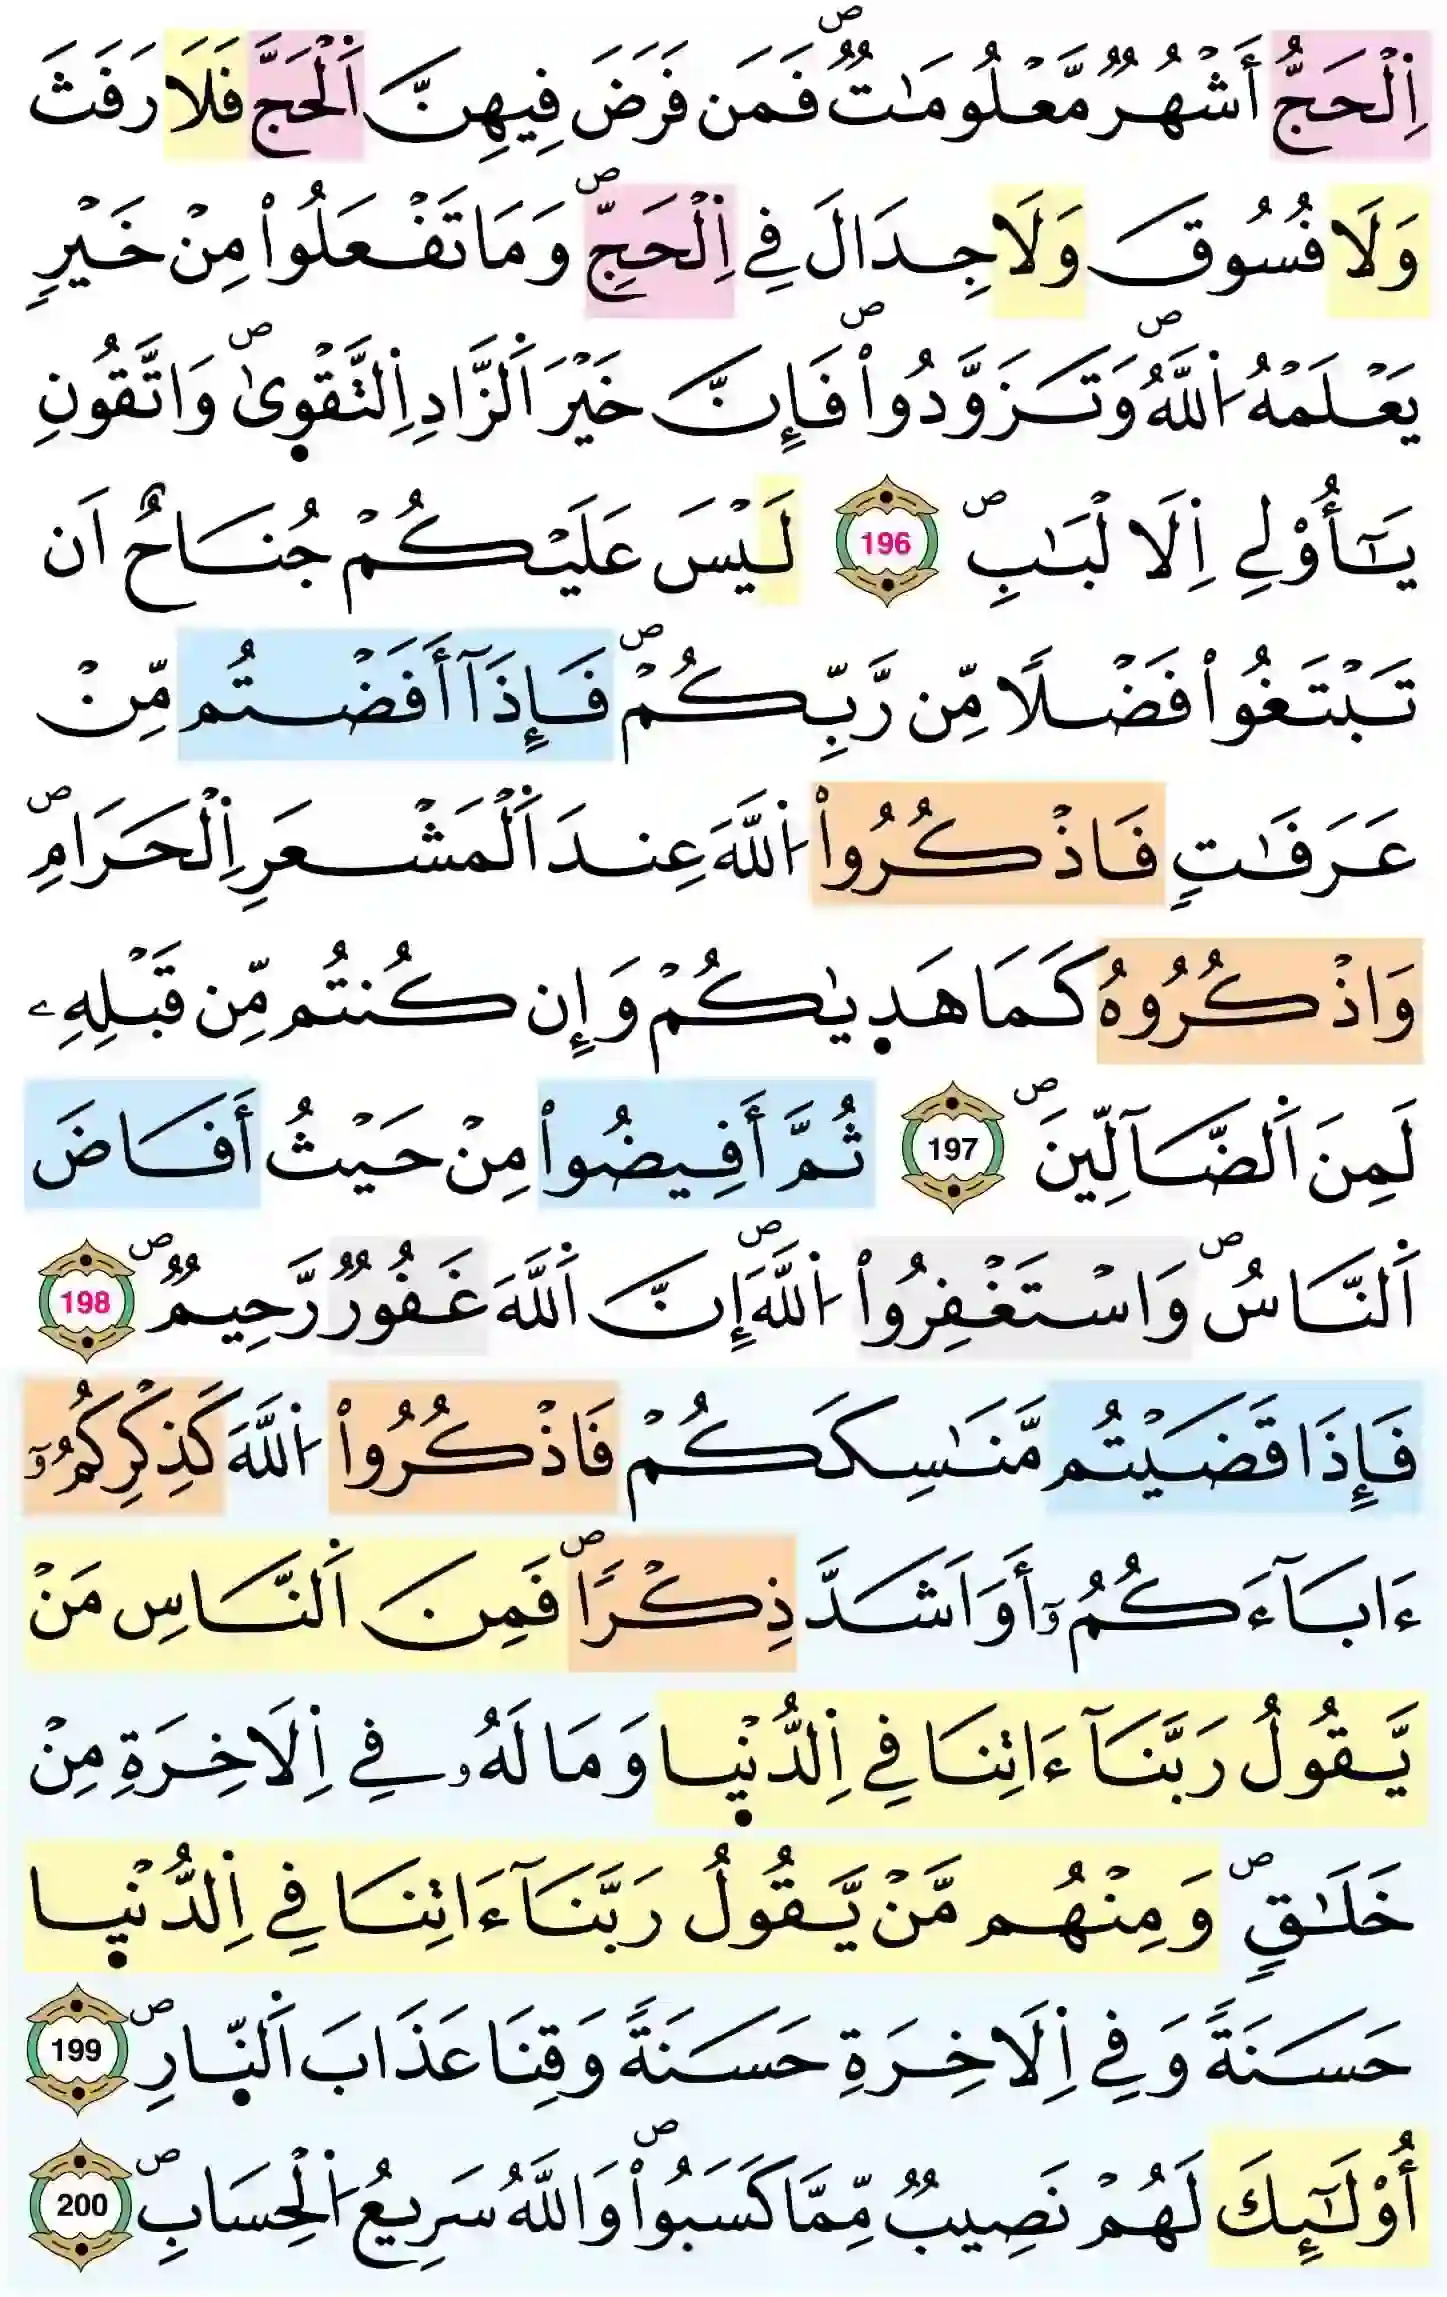 اِ۬لْحَجُّ أَشْهُرٞ مَّعْلُومَٰتٞۖ فَمَن فَرَضَ فِيهِنَّ اَ۬لْحَجَّ فَلَا رَفَثَ
وَلَا فُسُوقَ وَلَا جِدَالَ فِے اِ۬لْحَجِّۖ وَمَا تَفْعَلُواْ مِنْ خَيْرٖ
يَعْلَمْهُ اُ۬للَّهُۖ وَتَزَوَّدُواْۖ فَإِنَّ خَيْرَ اَ۬لزَّادِ اِ۬لتَّقْو۪يٰۖ وَاتَّقُونِ
يَٰٓأُوْلِے اِ۬لَالْبَٰبِۖ 196 لَيْسَ عَلَيْكُمْ جُنَاحٌ اَن
تَبْتَغُواْ فَضْلاٗ مِّن رَّبِّكُمْۖ فَإِذَآ أَفَضْتُم مِّنْ
عَرَفَٰتٖ فَاذْكُرُواْ اُ۬للَّهَ عِندَ اَ۬لْمَشْعَرِ اِ۬لْحَرَامِۖ
وَاذْكُرُوهُ كَمَا هَد۪يٰكُمْ وَإِن كُنتُم مِّن قَبْلِهِۦ
لَمِنَ اَ۬لضَّآلِّينَۖ 197 ثُمَّ أَفِيضُواْ مِنْ حَيْثُ أَفَاضَ
اَ۬لنَّاسُۖ وَاسْتَغْفِرُواْ اُ۬للَّهَۖ إِنَّ اَ۬للَّهَ غَفُورٞ رَّحِيمٞۖ 198
فَإِذَا قَضَيْتُم مَّنَٰسِكَكُمْ فَاذْكُرُواْ اُ۬للَّهَ كَذِكْرِكُمُۥٓ
ءَابَآءَكُمُۥٓ أَوَ اَشَدَّ ذِكْراٗۖ فَمِنَ اَ۬لنَّاسِ مَنْ
يَّقُولُ رَبَّنَآ ءَاتِنَا فِے اِ۬لدُّنْي۪ا وَمَا لَهُۥ فِے اِ۬لَاخِرَةِ مِنْ
خَلَٰقٖۖ وَمِنْهُم مَّنْ يَّقُولُ رَبَّنَآ ءَاتِنَا فِے اِ۬لدُّنْي۪ا
حَسَنَةٗ وَفِے اِ۬لَاخِرَةِ حَسَنَةٗ وَقِنَا عَذَابَ اَ۬لنّ۪ارِۖ 199
أُوْلَٰٓئِكَ لَهُمْ نَصِيبٞ مِّمَّا كَسَبُواْۖ وَاللَّهُ سَرِيعُ اُ۬لْحِسَابِۖ 200